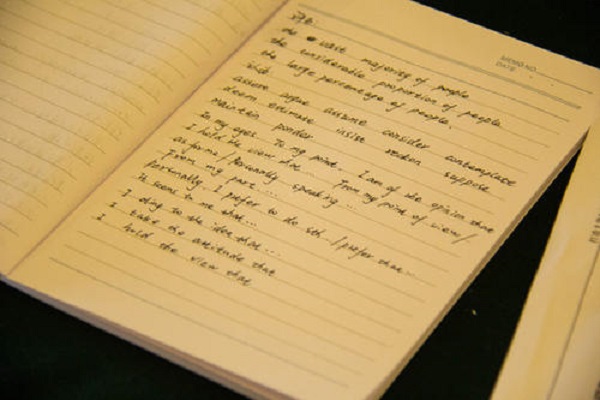 MEMO NO.
DATE
the vast majority of people
the considerable proportion of people
the large percentage of people.
assert argue assume consider contemplate
deem estimate insist reckon suppose
Maintain ponder
In my eyes. To my point... I am of the opinion that
I hold the view that... From my point of view/
as for me/ Personally speaking...
From my part...
Personally, I prefer to do sth. / prefer that...
It seems to me that...
I cling to the idea that...
I take the attitude that
I hold the view that